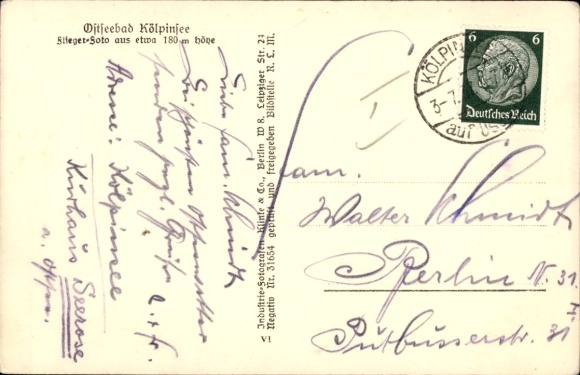 Ostseebad Kölpinsee
Flieger-Foto aus etwa 180 m Höhe
Liebe Fam. Schmidt
Bei schönstem
senden
Adresse: Kölpinsee
Kurhaus Seerose
Industrie-Fotografen Klinke & Co., Berlin W 8, Leipziger Str. 24
Negativ Nr. 31654 geprüft und freigegeben Bildstelle R. L. M.
VI
I
6 6
Deutsches Reich
KÖLPIN
auf US
Fam.
Walter Schmidt
Berlin N. 31.
Putbusserstr. 31 I